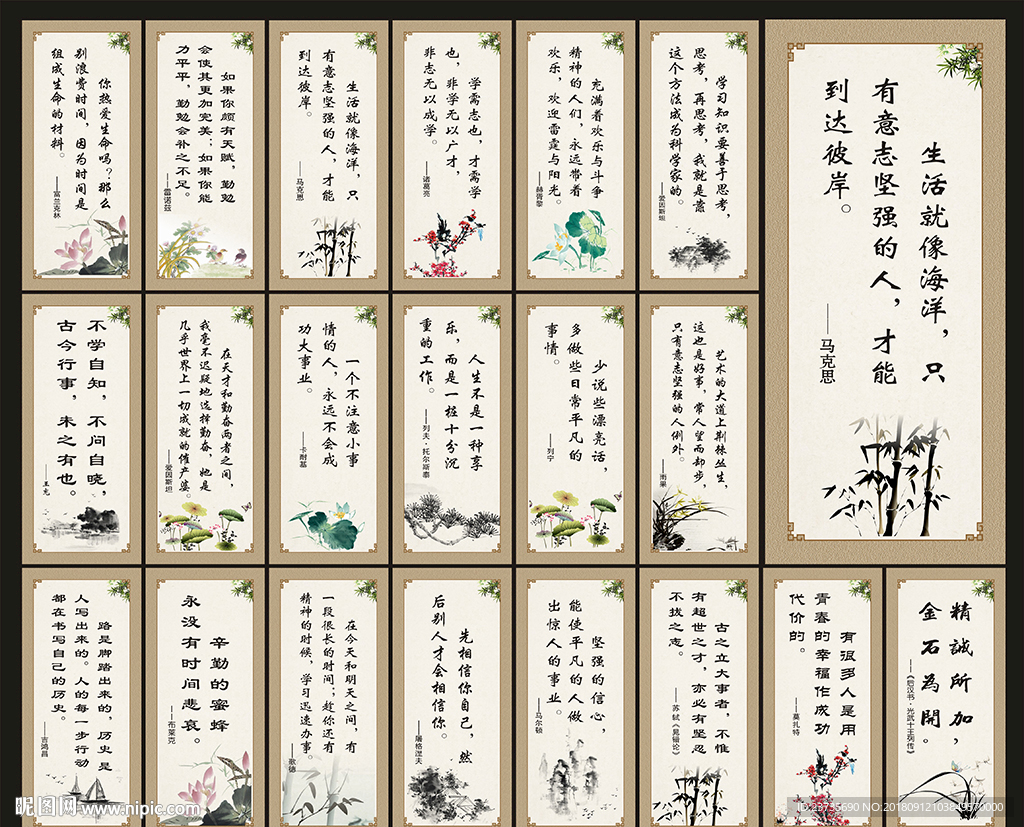 你热爱生命吗?那么
别浪费时间,因为时间是
组成生命的材料。
——富兰克林
如果你颇有天赋,勤勉
会使其更加完美;如果你能
力平平,勤勉会补之不足。
——雷诺兹
生活就像海洋,只
有意志坚强的人,才能
到达彼岸。
——马克思
学需志也,才需学
也,非学无以广才,
非志无以成学。
——诸葛亮
充满着欢乐与斗争
精神的人们,永远带着
欢乐,欢迎雷霆与阳光。
——赫胥黎
学习知识要善于思考,
思考,再思考,我就是靠
这个方法成为科学家的。
——爱因斯坦
生活就像海洋,只
有意志坚强的人,才能
到达彼岸。
——马克思
不学自知,不问自晓,
古今行事,未之有也。
——王充
在天才和勤奋两者之间,
我毫不迟疑地选择勤奋,她是
几乎世界上一切成就的催产婆。
——爱因斯坦
一个不注意小事
情的人,永远不会成
功大事业。
——卡耐基
人生不是一种享
乐,而是一桩十分沉
重的工作。
——列夫·托尔斯泰
少说些漂亮话,
多做些日常平凡的
事情。
——列宁
艺术的大道上荆棘丛生,
这也是好事,常人望而却步,
只有意志坚强的人例外。
——雨果
路是脚踏出来的,历史是
人写出来的。人的每一步行动
都在书写自己的历史。
——吉鸿昌
辛勤的蜜蜂
永没有时间悲哀。
——布莱克
在今天和明天之间,有
一段很长的时间;趁你还有
精神的时候,学习迅速办事。
——歌德
先相信你自己,然
后别人才会相信你。
——屠格涅夫
坚强的信心,
能使平凡的人做
出惊人的事业。
——马尔顿
古之立大事者,不惟
有超世之才,亦必有坚忍
不拔之志。
——苏轼《晁错论》
有很多人是用
青春的幸福作成功
代价的。
——莫扎特
精誠所加,
金石為開。
——《后汉书·光武十王列传》
昵图网 www.nipic.com